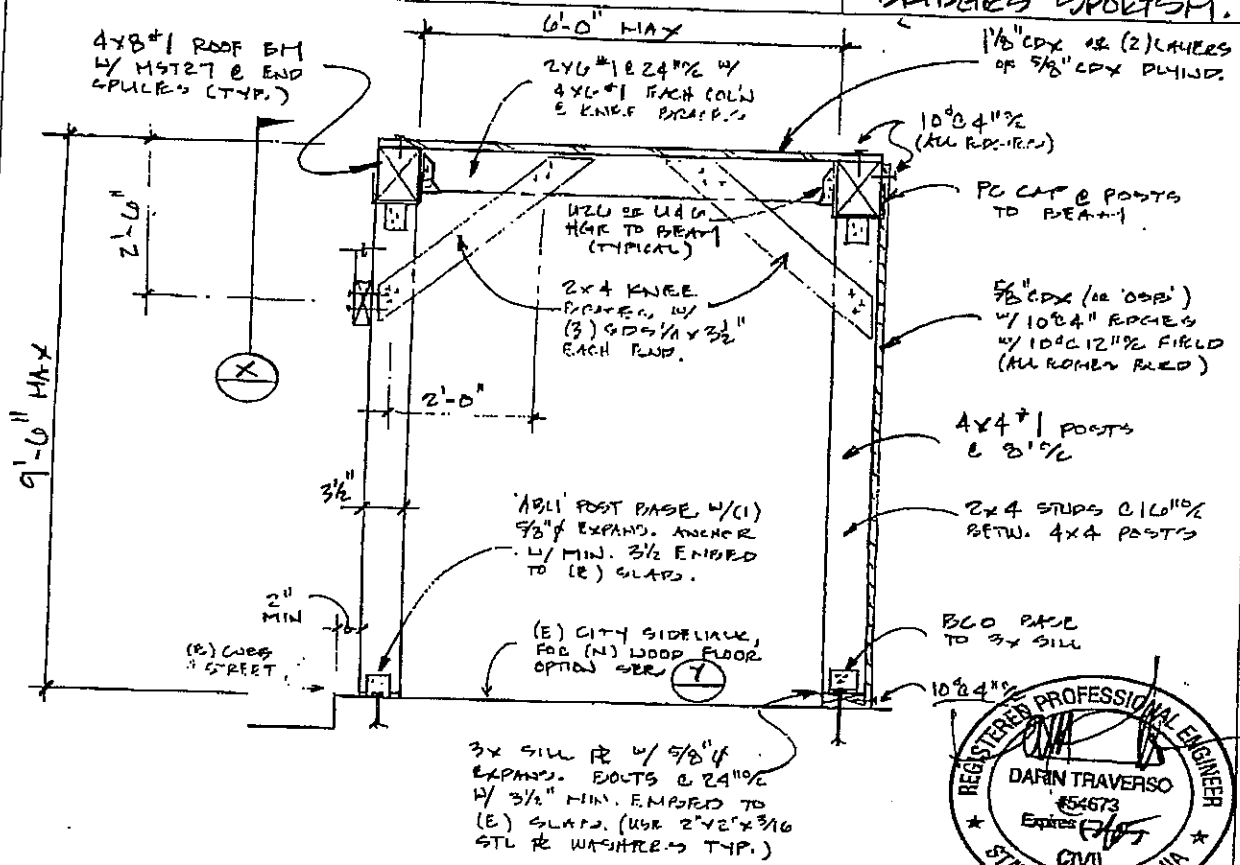 BADGERS SPORTSM.
6'-0" MAX
4x8 #1 ROOF BM
W/ MST27 @ END
SPLICES (TYP.)
2x6 #1 @ 24"o/c W/
4x6 #1 EACH COL'N
@ KNEE BRACES
1 1/8" CDX OR (2) LAYERS
OF 5/8" CDX PLYWD.
10d @ 4" o/c
(ALL EDGES)
PC CAP @ POSTS
TO BEAM
2'-6"
U26 OR U46
HGR TO BEAM
(TYPICAL)
2x4 KNEE
BRACES, W/
(3) SDS 1/4 x 3 1/2"
EACH END.
5/8" CDX (OR 'OSB')
W/ 10d @ 4" EDGES
W/ 10d @ 12" o/c FIELD
(ALL EDGES BLKD)
X
9'-6" MAX
2'-0"
4x4 #1 POSTS
@ 8' o/c
3 1/2"
'ABU' POST BASE W/(1)
5/8"φ EXPAND. ANCHOR
W/ MIN. 3 1/2 EMBED
TO (E) SLAB.
2x4 STUDS @ 16"o/c
BETW. 4x4 POSTS
2"
MIN
(E) CURB
@ STREET
(E) CITY SIDEWALK,
FOR (N) WOOD FLOOR
OPTION SEE
Y
BCO BASE
TO 3x SILL
10d @ 4" o/c
3x SILL PL W/ 5/8"φ
EXPAND. BOLTS @ 24"o/c
W/ 3 1/2" MIN. EMBED TO
(E) SLAB. (USE 2"x2"x3/16
STL PL WASHERS TYP.)
REGISTERED PROFESSIONAL ENGINEER
DARIN TRAVERSO
#54673
Expires
CIVIL